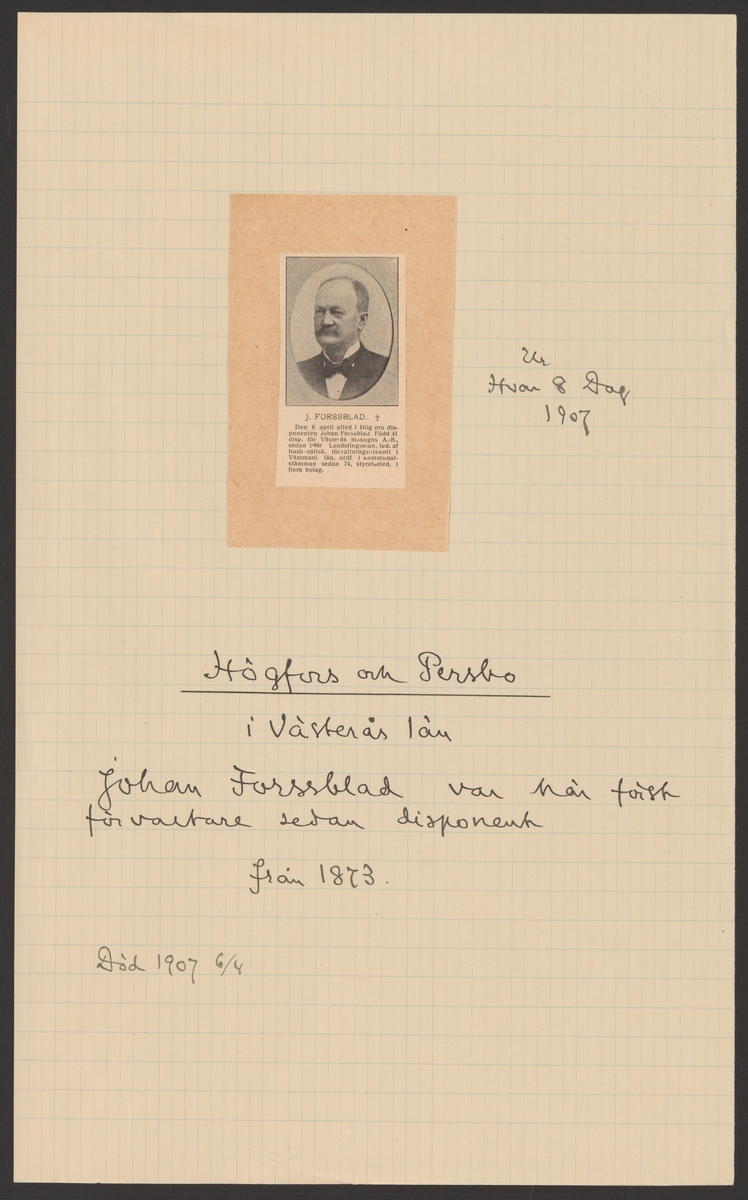 J. FORSSBLAD. †
Den 6 april afled i Högfors dis-
ponenten Johan Forssblad Född 41
disp. för Västerås masugns A.-B.,
sedan 1900 Landstingsman, led. af
hush.-sällsk. förvaltningsutskott i
Västmanl län, ordf. i kommunal-
stämman sedan 74, styrelseled. i
flera bolag.
Ur
Hvar 8 Dag
1907
Högfors och Persbo
i Västerås län
Johan Forssblad var här först
förvaltare sedan disponent
från 1873.
Död 1907 6/4